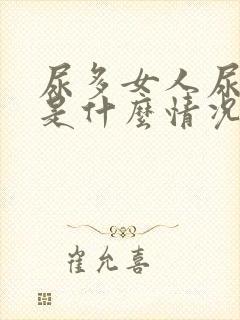 尿多女人尿
是什麽情况
崔允喜